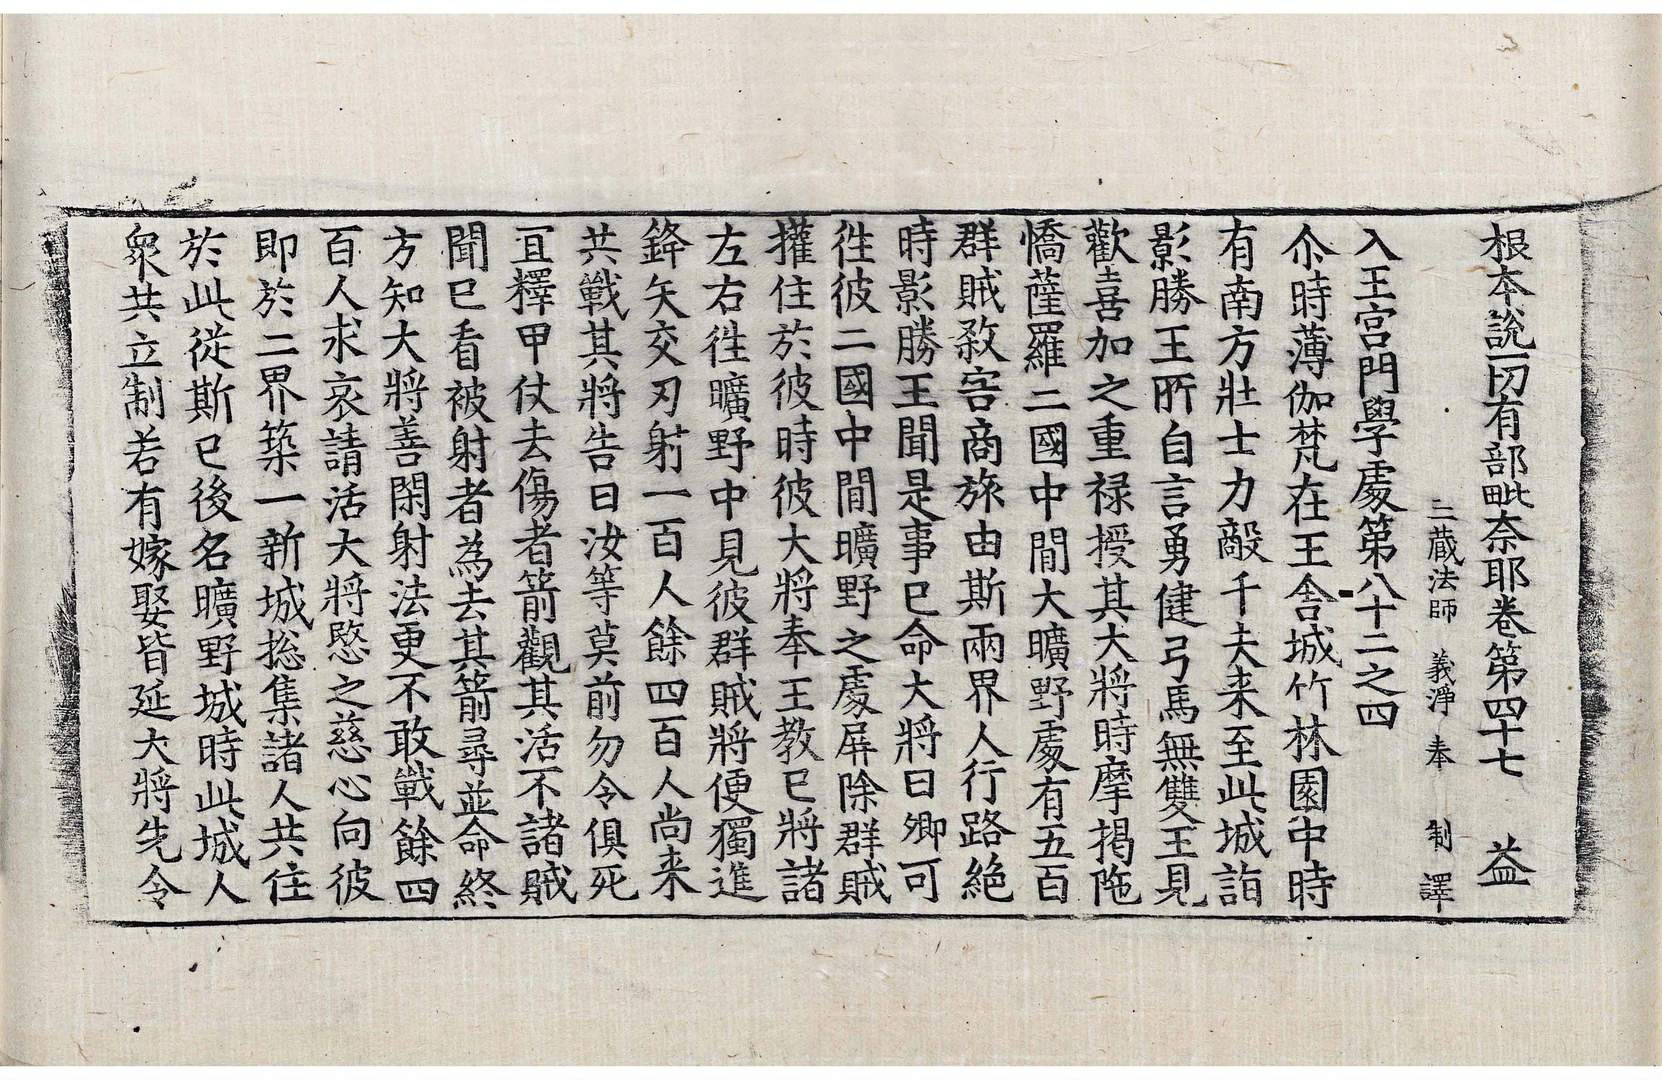 根本說一切有部毗奈耶卷第四十七　益
三蔵法師　義淨　奉　制　譯
入王宫門學處第八十二之四
尒時薄伽梵在王舎城竹林園中時
有南方壯士力敵千夫来至此城詣
影勝王所自言勇健弓馬無雙王見
歡喜加之重禄授其大將時摩揭陁
憍薩羅二國中間大曠野處有五百
群賊敎害商旅由斯兩界人行路絶
時影勝王聞是事已命大將曰卿可
徃彼二國中間曠野之處屏除群賊
擁住於彼時彼大將奉王教已將諸
左右徃曠野中見彼群賊將便獨進
鋒矢交刃射一百人餘四百人尚来
共戰其將告曰汝等莫前勿令俱死
冝釋甲仗去傷者箭觀其活不諸賊
聞已看被射者為去其箭尋並命終
方知大將善閑射法更不敢戰餘四
百人求哀請活大將愍之慈心向彼
即於二界築一新城捴集諸人共住
於此從斯已後名曠野城時此城人
衆共立制若有嫁娶皆延大將先令